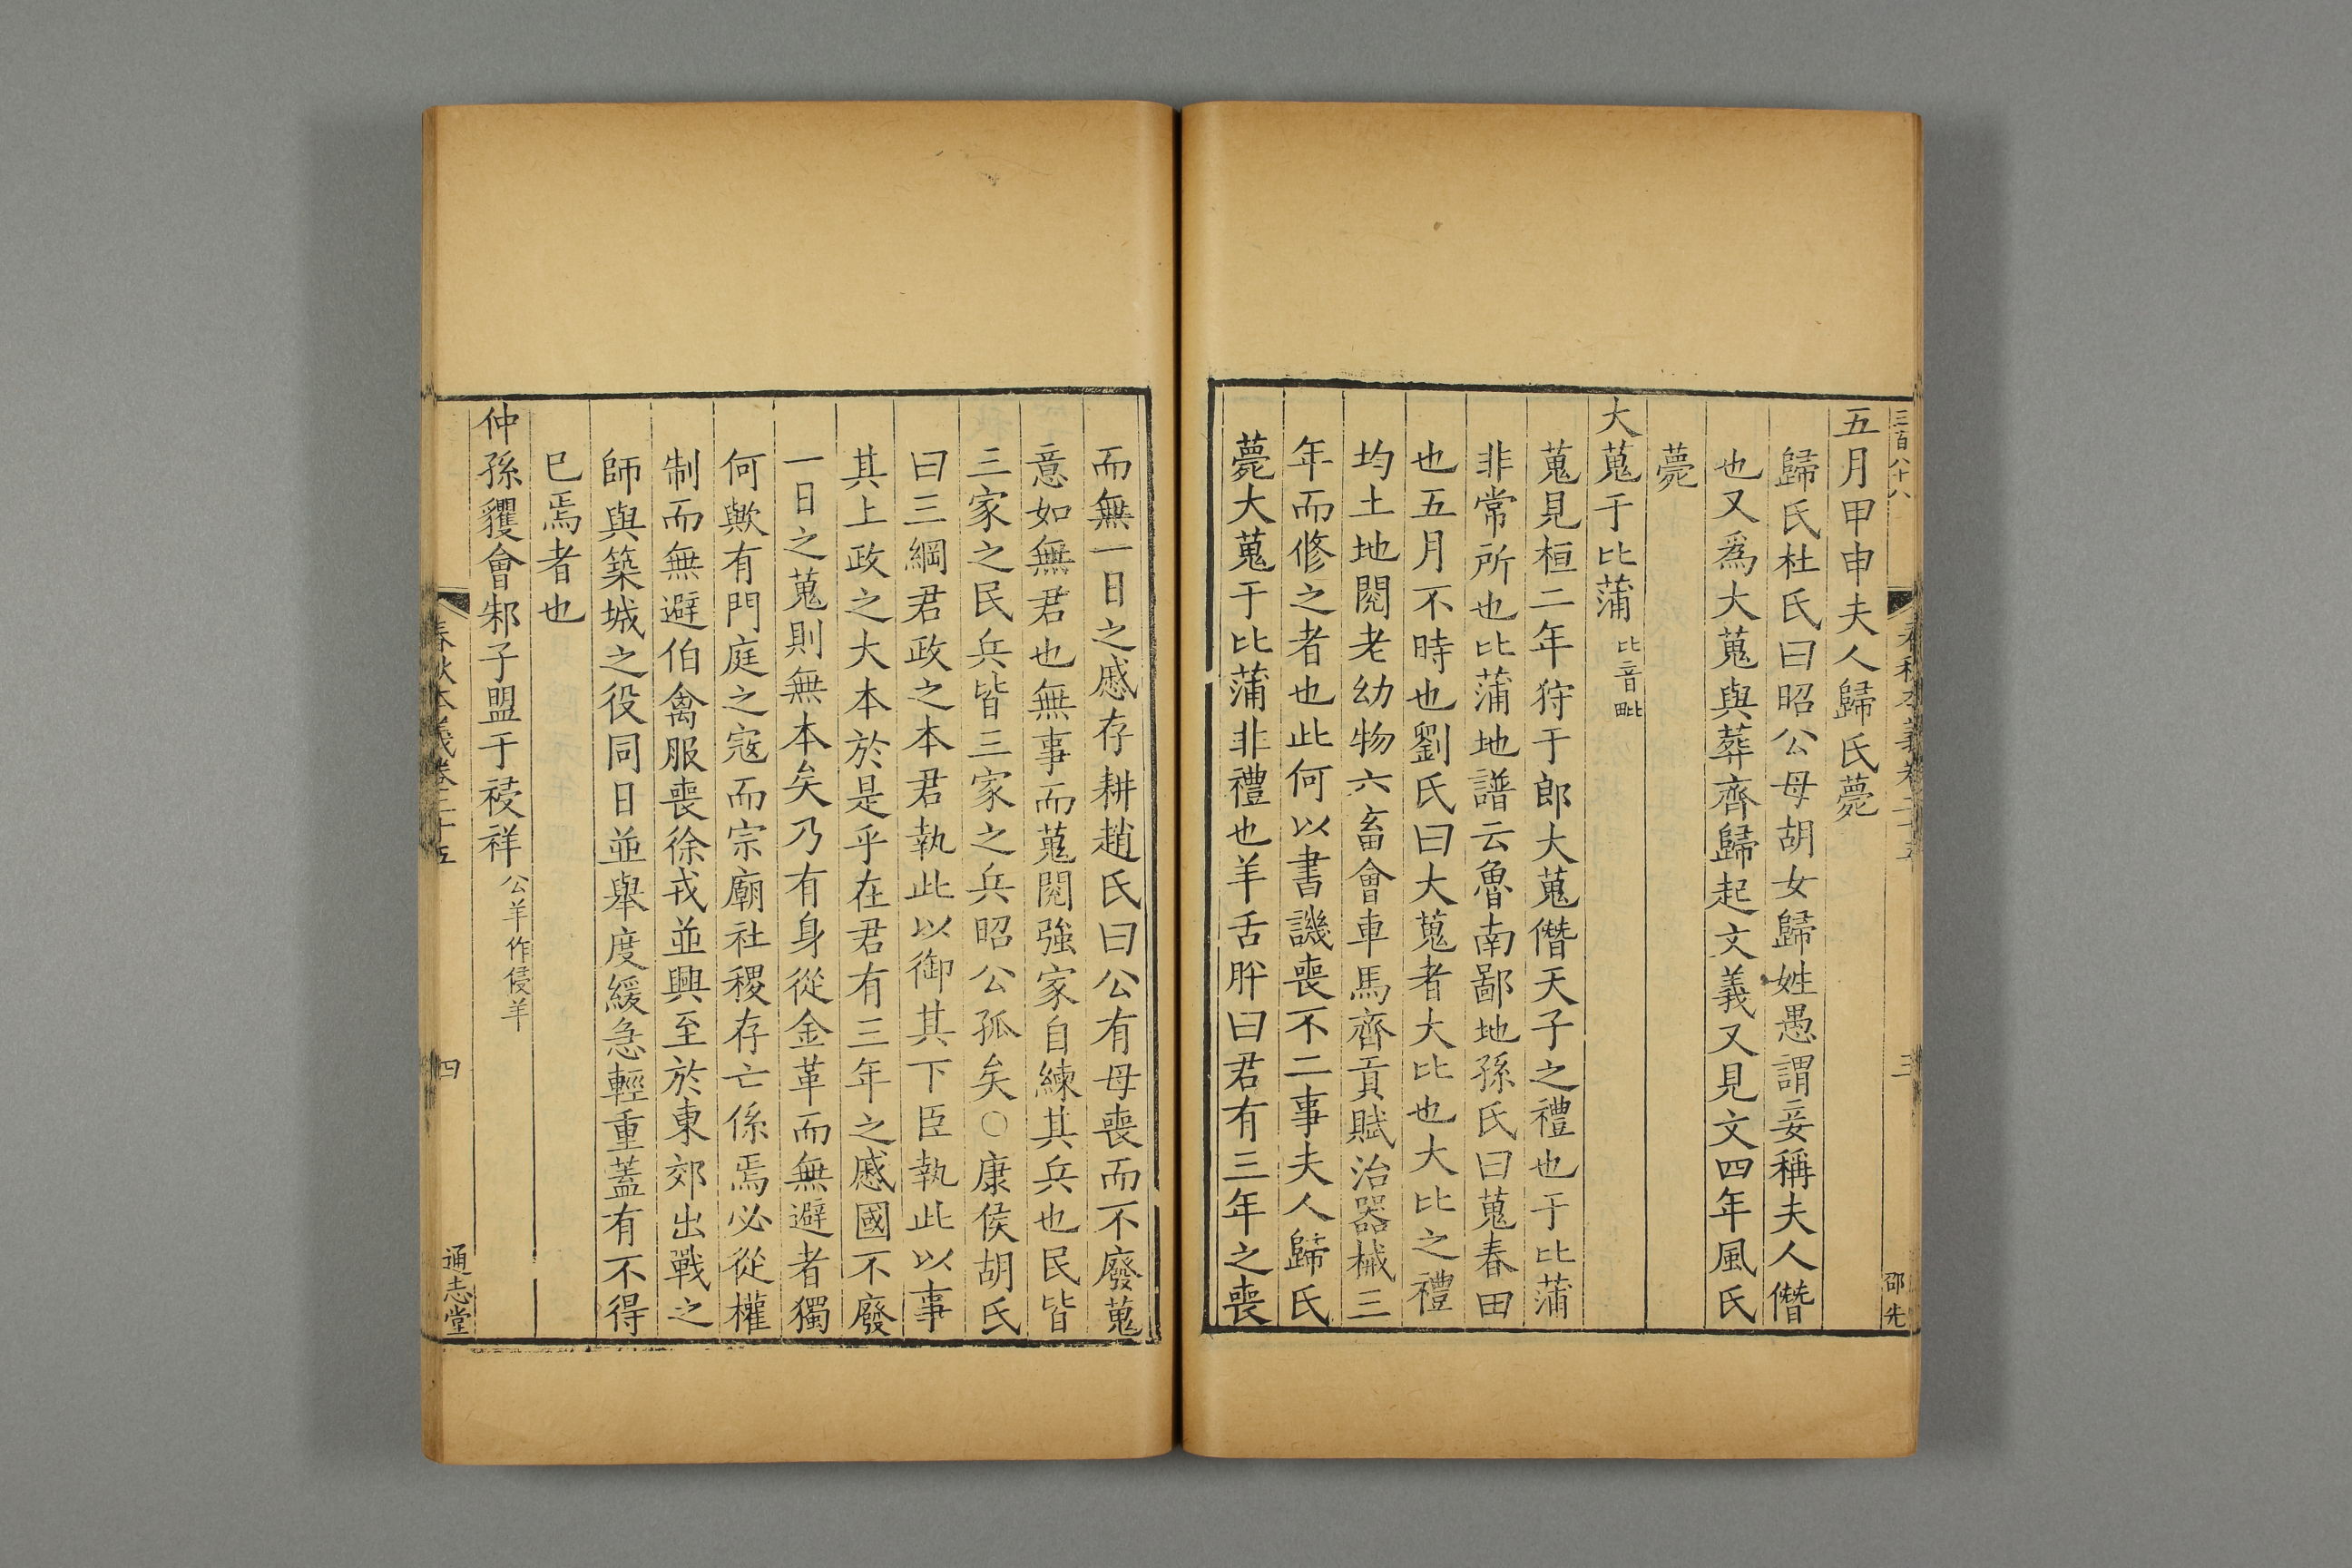 三百八十八 春秋本義卷二十五 三 邵先
五月甲申夫人歸氏薨
歸氏杜氏曰昭公母胡女歸姓愚謂妾稱夫人僭
也又爲大蒐與葬齊歸起文義又見文四年風氏
薨
大蒐于比蒲 比音毗
蒐見桓二年狩于郎大蒐僭天子之禮也于比蒲
非常所也比蒲地譜云魯南鄙地孫氏曰蒐春田
也五月不時也劉氏曰大蒐者大比也大比之禮
均土地閱老幼物六畜會車馬齊貢賦治器械三
年而修之者也此何以書譏喪不二事夫人歸氏
薨大蒐于比蒲非禮也羊舌肸曰君有三年之喪
而無一日之慼存耕趙氏曰公有母喪而不廢蒐
意如無君也無事而蒐閱強家自練其兵也民皆
三家之民兵皆三家之兵昭公孤矣○康侯胡氏
曰三綱君政之本君執此以御其下臣執此以事
其上政之大本於是乎在君有三年之慼國不廢
一日之蒐則無本矣乃有身從金革而無避者獨
何歟有門庭之寇而宗廟社稷存亡係焉必從權
制而無避伯禽服喪徐戎並興至於東郊出戰之
師與築城之役同日並舉度緩急輕重蓋有不得
已焉者也
仲孫貜會邾子盟于祲祥 公羊作侵羊
春秋本義卷二十五 四 通志堂